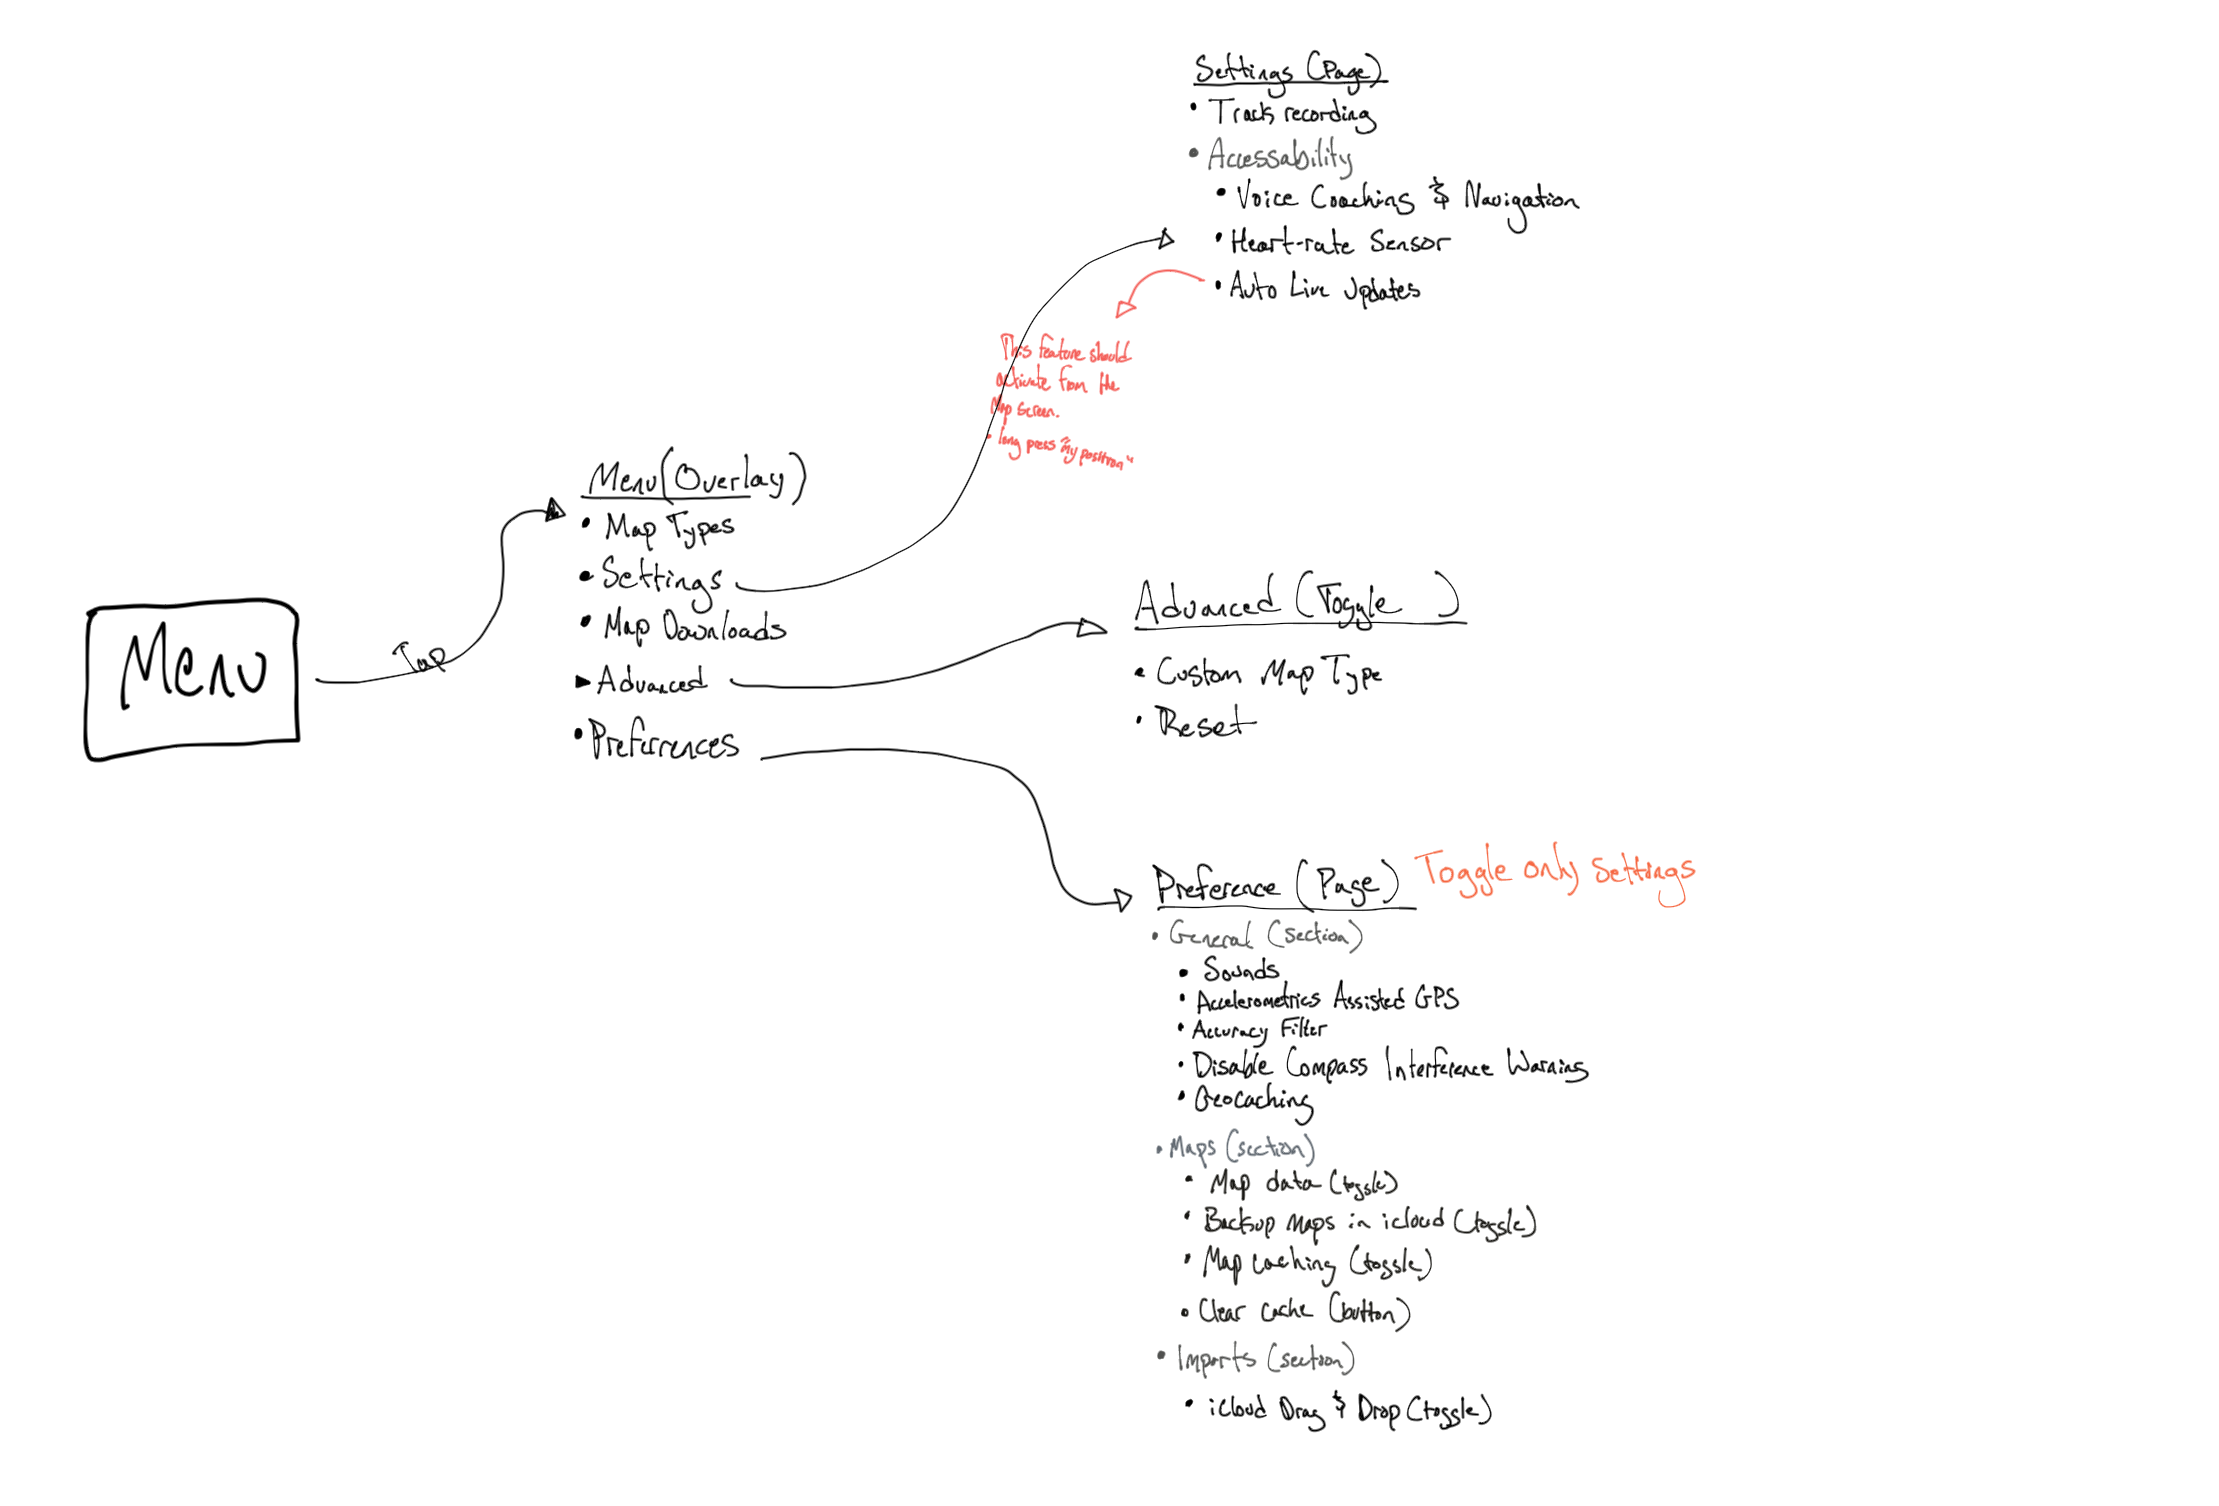 Menu
Tap
Menu (Overlay)
• Map Types
• Settings
• Map Downloads
▶ Advanced
• Preferrences
Settings (Page)
• Track recording
• Accessability
• Voice Coaching & Navigation
• Heart-rate Sensor
• Auto Live Updates
This feature should
activate from the
Map Screen.
• long press "my position"
Advanced (Toggle )
• Custom Map Type
• Reset
Preference (Page) Toggle only settings
• General (section)
• Sounds
• Accelerometrics Assisted GPS
• Accuracy Filter
• Disable Compass Interference Warning
• Geocaching
• Maps (section)
• Map data (toggle)
• Backup Maps in icloud (toggle)
• Map caching (toggle)
• Clear cache (button)
• Imports (section)
• icloud Drag & Drop (toggle)